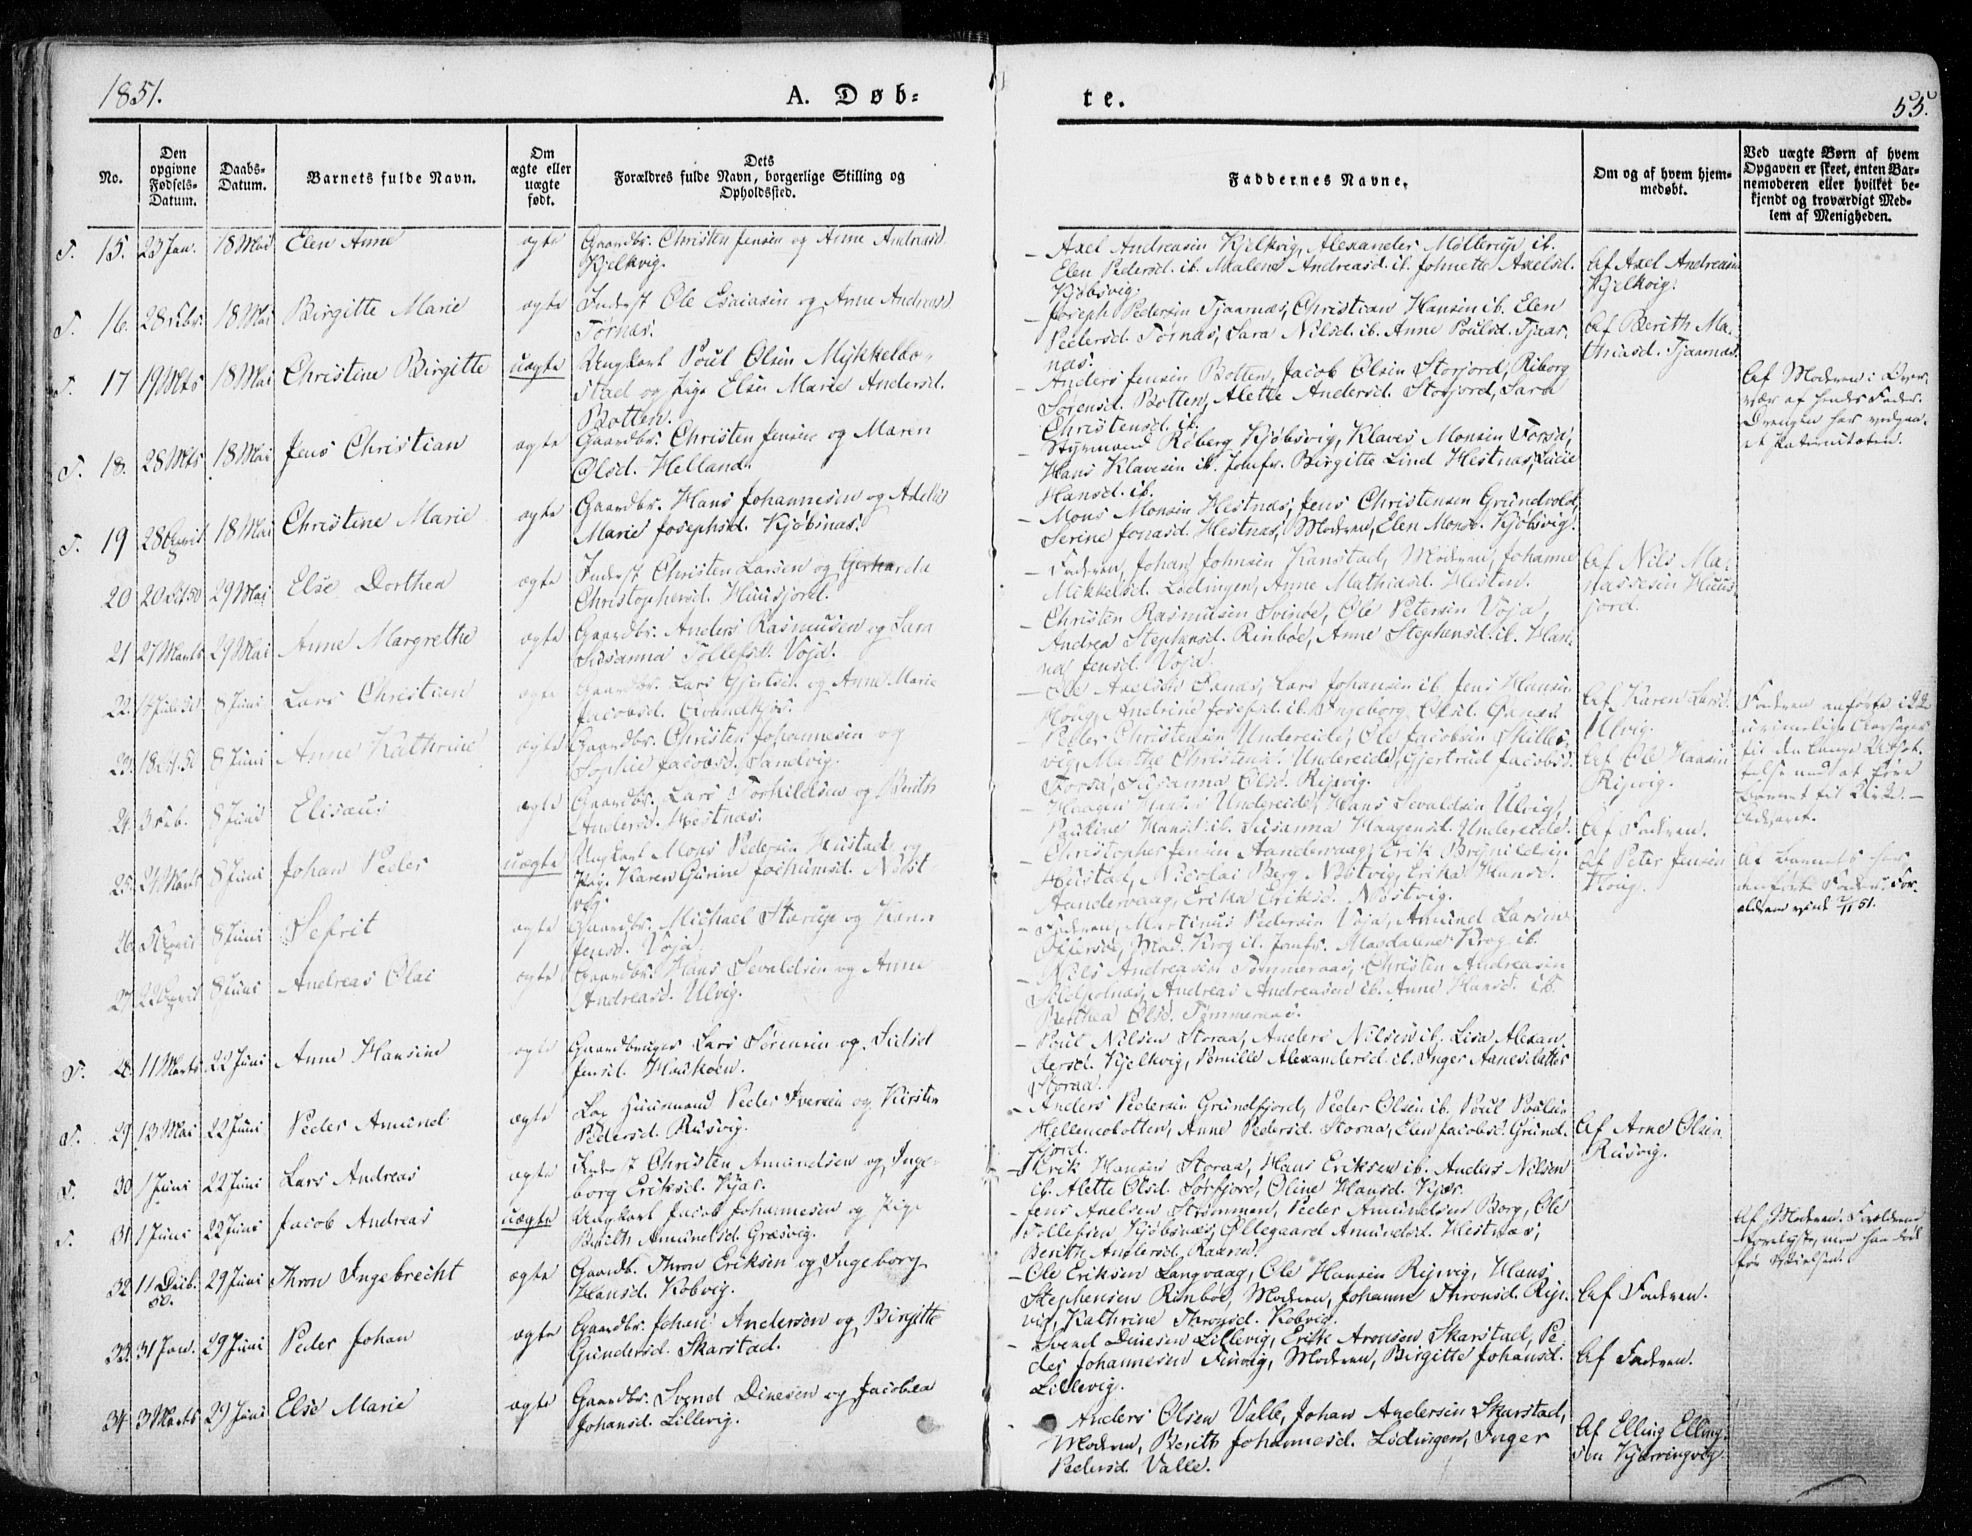 1851.
A. Døb-
te.
55.
No.
Den opgivne Fødsels-Datum.
Daabs-Datum.
Barnets fulde Navn.
Om ægte eller uægte født.
Dets Forældres fulde Navn, borgerlige Stilling og Opholdssted.
Faddernes Navne.
Om og af hvem hjemmedøbt.
Ved uægte Børn af hvem Opgaven er skeet, enten Barnemoderen eller hvilket bekjendt og troværdigt Medlem af Menigheden.
T. 15. 23 Jan. 18 Mai Elen Anne ægte Gaardbr. Christen Jensen og Anne Andreasd.
Kjelkvig.
Axel Andreasen Kjelkvig, Alexander Møllerup ib.
Elen Pedersd. ib. Malene Andreasd. ib. Johnette Axelsd.
Kjøbsvig.
Af Axel Andreasen
Kjelkvig.
T. 16. 28 Febr. 18 Mai Birgitte Marie ægte Inderst Ole Esaiasen og Anne Andreasd
Tørnæs.
Joseph Pedersen Tjaarnæs, Christian Hansen ib. Elen
Pedersd. Tørnæs, Sara Nilsd. ib. Anne Poulsd. Tjaar-
næs.
Af Berith Ma-
thiasd. Tjaarnæs.
T. 17 19 Mts 18 Mai Christine Birgitte uægte Ungkarl Poul Olsen Mykkelbo-
stad og Pige Elsen Marie Andersd.
Botten.
Anders Jensen Botten, Jacob Olsen Storjord, Riborg
Sørensd. Botten, Alette Andersd. Storjord, Sara
Christensd. ib.
Af Moderen i Over-
vær af hendes Fader.
T. 18. 28 Mts 18 Mai Jens Christian ægte Gaardbr. Christen Jensen og Maren
Olsd. Helland.
Styrmand Roberg Kjøbsvig, Klaves Monsen Forsa,
Hans Klavesen ib. Jomfr. Birgitte Lind Hestnæs, Lucie
Hansd. ib.
T. 19 28 April 18 Mai Christine Marie ægte Gaardbr. Hans Johannesen og
Marie Josephsd. Kjøbsnæs.
Mons Monsen Hestnæs, Jens Christensen Grundvold,
Serine Jonasd. Hestnæs, Moderen, Elen Monsd. Kjøbsvig.
20 29 Mai Else Dorthea ægte Inderst Christen Larsen og Gerharda
Christophersd. Huusjord.
Faderen, Johan Johnsen Kanstad, Moderen, Johanne
Mikkelsd. Lødingen, Anne Mathiasd. Hesten.
Af Nils Ma-
nassesen Huus-
jord.
21 27 Marts 29 Mai Anne Margrethe ægte Gaardbr. Anders Rasmusen og Sara
Susanna Tollefsd. Voja.
Christen Rasmusen Svinøe, Ole Petersen Voja,
Andrea Stephensd. Rinbøe, Anne Stephensd. ib. Han-
na Jensd. Voja.
22. 8 Juni Lars Christian ægte Gaardbr. Lars Gjertsen og Anne Marie
Jacobsd.
Ole Axelsen Fanæs, Lars Johansen ib. Jens Hansen
Houg, Andrine Josephsd. ib. Ingeborg Olsd.
Af Karen Larsd.
Ulvig.
23. 8 Juni Anne Kathrine ægte Gaardbr. Christen Johannesen og
Sophie Jacobsd. Sandvig.
Peder Christensen Undereide, Ole Jacobsen Skille-
vig, Marthe Christensd. Undereide, Gjertrud Jacobsd.
Forsa, Susanna Olsd. Ripvig.
Af Ole Hansen
Ripvig.
24. 3 Feb. 8 Juni Elisæus ægte Gaardbr. Lars Torkildsen og Berith
Andersd. Hestnæs.
Haagen Hansen Undereide, Hans Sevaldsen Ulvig,
Pauline Hansd. ib. Susanna Haagensd. Undereide.
Af Faderen.
25. 8 Juni Johan Peder uægte Ungkarl Mons Pedersen Hustad og
Pige Karen Gurine Jochumsd. Nøst-
vig.
Christopher Jensen Aandervaag, Erik Brynildsen
Hustad, Nicolai Berg Nøstvig, Erika Hansd.
Aandervaag, Erika Eriksd. Nøstvig.
Af Peter Jensen
Houg.
26. 8 Juni Sefrit ægte Gaardbr. Michael Størup og Karen
Jensd. Voja.
Faderen, Martinus Pedersen Voja, Amund Larsen
Offersøe, Mad. Krog ib. Jomfr. Magdalene Krog ib.
27. 22 April 8 Juni Andreas Olai ægte Gaardbr. Hans Sevaldsen og Anne
Andreasd. Ulvig.
Nils Andreasen Tømmeraas, Christen Andreasen
Andreas Andreasen ib. Anne Hansd. ib.
Berthea Olsd. Tømmeraas.
T. 28. 11 Marts 22 Juni Anne Hansine ægte Gaardbruger Lars Sørensen og Sidsel
Jensd. Haukøen.
Poul Nilsen Storaa, Anders Nilsen ib. Lisa Alexan-
dersd. Kjelkvig, Pernille Alexandersd. ib. Inger Aanesdatter
Storaa.
T. 29 13 Mai 22 Juni Peder Amund ægte Lap Huusmand Peder Iversen og Kirsten
Pedersd. Rusvig.
Anders Pedersen Grundfjord, Peder Olsen ib. Poul Poulsen
Hellemobotten, Anne Pedersd. Storaa, Elen Jacobsd. Grund-
fjord.
Af Arne Olsen
Rusvig.
T. 30 1 Juni 22 Juni Lars Andreas ægte Inderst Christen Amundsen og Inge-
borg Eriksd. Kjær.
Erik Hansen Storaa, Hans Eriksen ib. Anders Nilsen
ib. Alette Olsd. Sørfjord, Oline Hansd. Kjær.
T. 31. 1 Juni 22 Juni Jacob Andreas uægte Ungkarl Jacob Johannesen og Pige
Berith Amundsd. Græsvig.
Jens Axelsen Strømmen, Peder Amundsen Borg, Ole
Tollefsen Kjøbsnæs, Øllegaard Amundsd. Hestnæs,
Berith Andersd. Raanen.
Af Moderen. Forældrene
32. 11 Decb. 50. 29 Juni Thron Ingebrecht ægte Gaardb. Thron Eriksen og Ingeborg
Hansd. Kobvig.
Ole Eriksen Langvaag, Ole Hansen Ripvig, Hans
Stephensen Rinbøe, Moderen, Johanna Thronsd. Rip-
vig, Kathrine Thronsd. Kobvig.
Af Faderen.
33. 31 Jan. 29 Juni Peder Johan ægte Gaardbr. Johan Andersen og Birgitte
Gundersd. Skarstad.
Svend Dinesen Lillevig, Erik Aronsen Skarstad, Pe-
der Johannesen Finvig, Moderen, Birgitte Johansd.
Lillevig.
Af Faderen.
34. 3 Marts 29 Juni Else Marie ægte Gaardbr. Svend Dinesen og Jacobea
Johansd. Lillevig.
Anders Olsen Valle, Johan Andersen Skarstad,
Moderen, Berith Johannesd. Lødingen, Inger
Pedersd. Valle.
Af Elling Elling-
sen Kjærringvig.